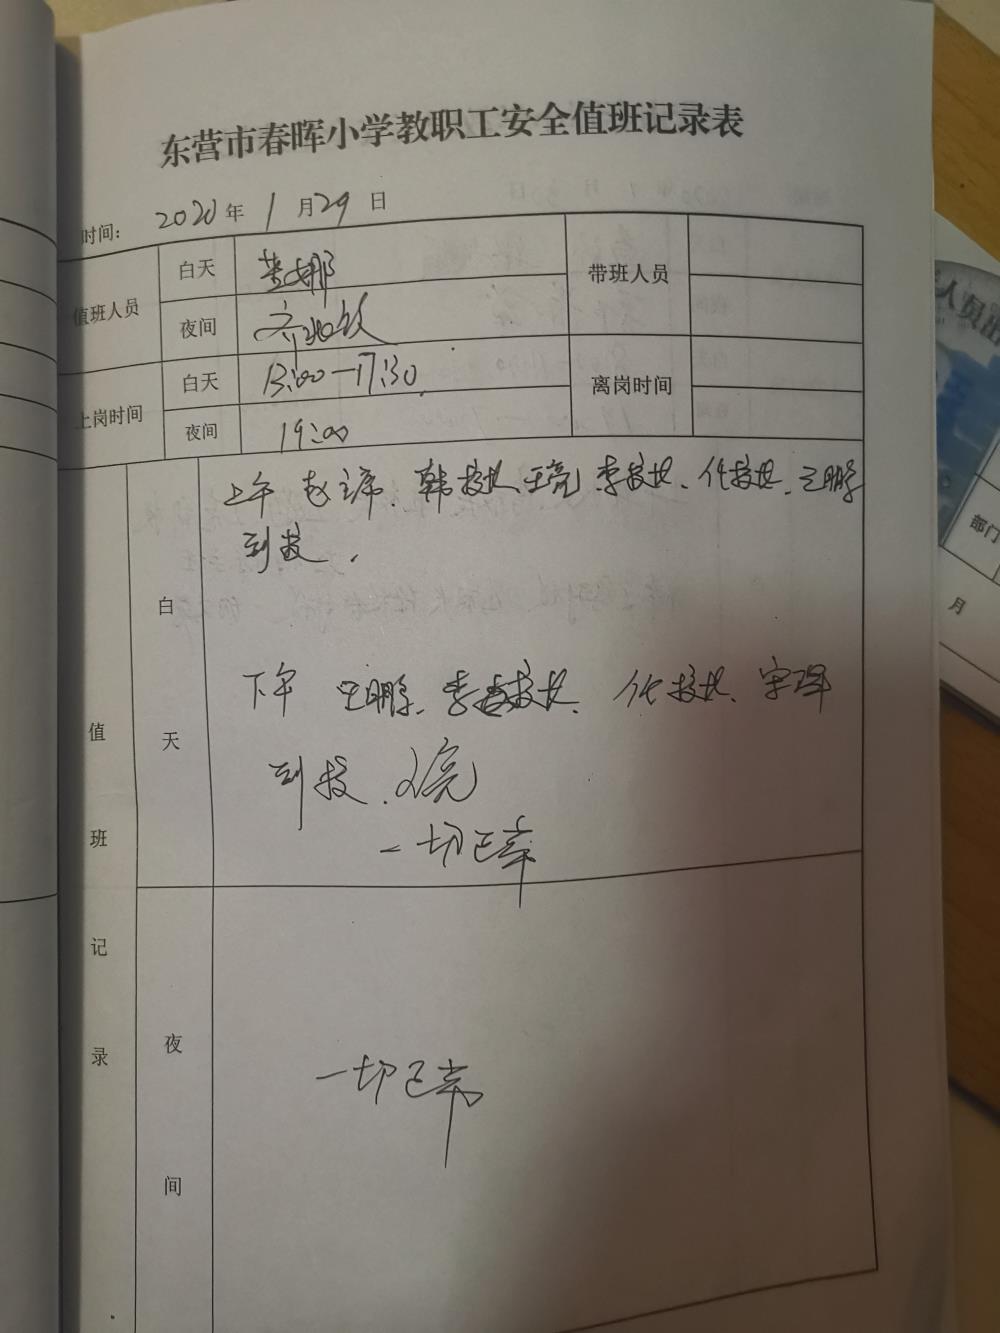 东营市春晖小学教职工安全值班记录表
时间： 2020 年 1 月 29 日
值班人员 白天 娜 带班人员
夜间
上岗时间 白天 13:00—17:30 离岗时间
夜间 19:00
值班记录
白天
上午 赵主席、韩校长、王亮、李校长、代校长、王鹏
到校.
下午 王鹏、李校长、代校长、宋
到校.
一切正常
夜间
一切正常
人员出
部门
月